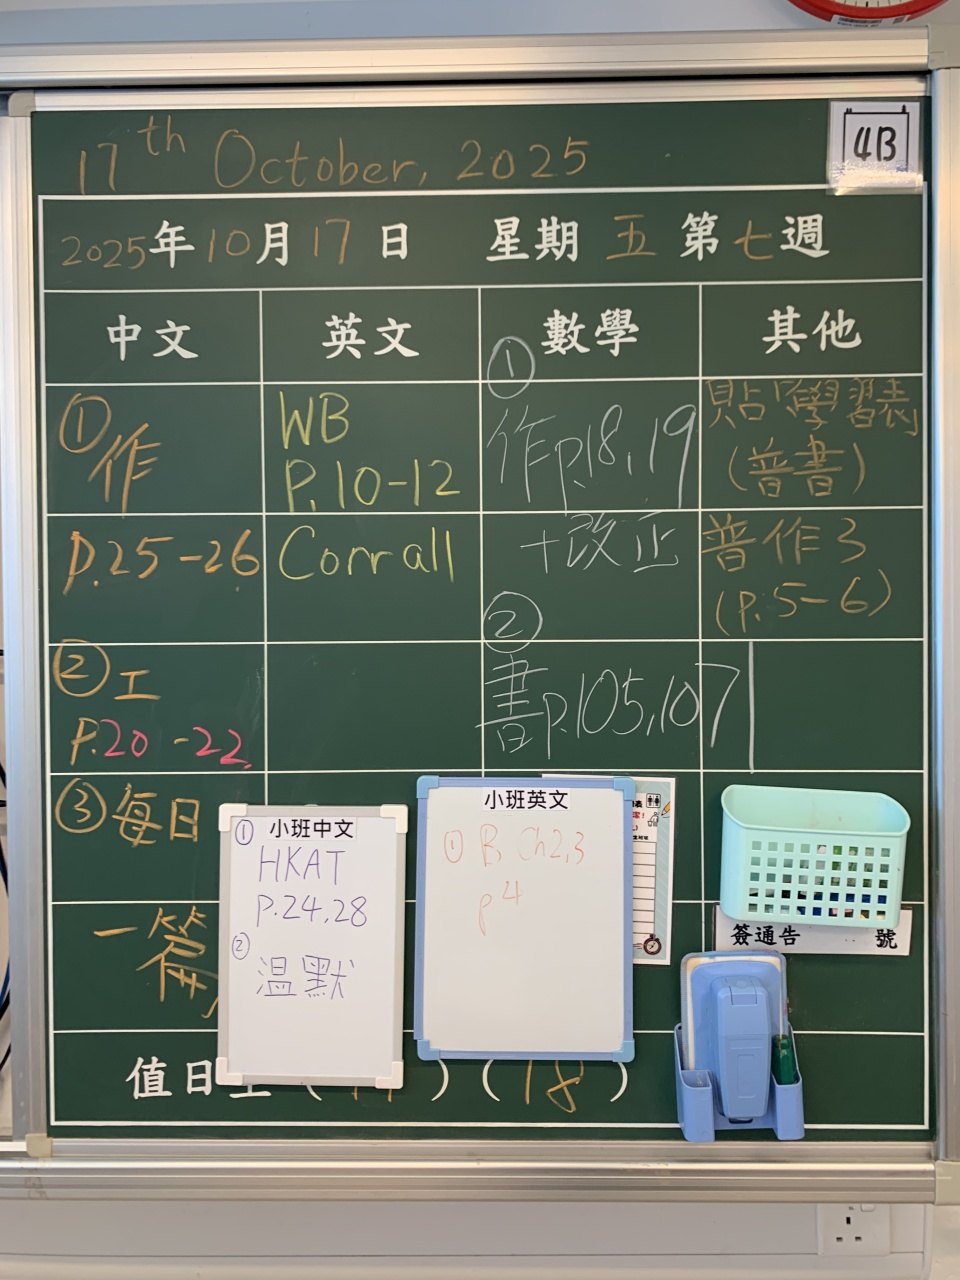 17th October, 2025
4B
2025年10月17日 星期五 第七週
中文
英文
數學
其他
①作
P.25-26
②工
P.20-22
③每日
一篇
WB
P.10-12
Corr all
①
作p.18,19
+改正
②
書p.105,107
貼「學習表
(普書)
普作3
(P.5-6)
小班中文
① HKAT
P.24,28
②
溫默
小班英文
① B, Ch2,3
p4
簽通告 號
值日生 ( ) (18)